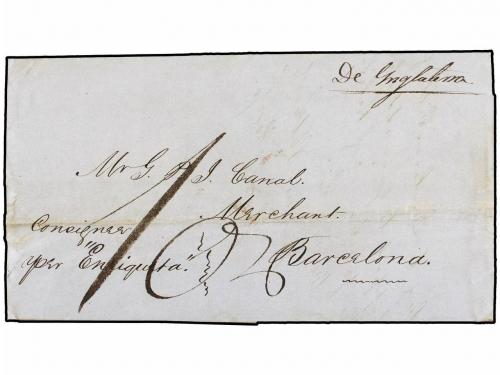 De Inglaterra
Mr G. & J. Canal.
Merchant.
Consignee
per "Enriqueta."
Barcelona.